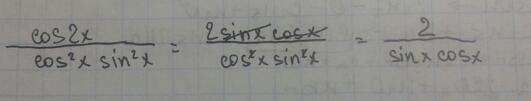 cos2x / cos²x sin²x = 2sinx cosx / cos²x sin²x = 2 / sinx cosx